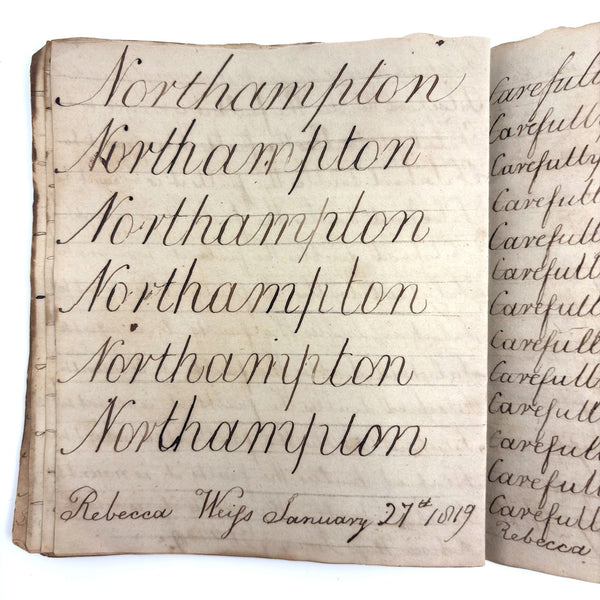 Northampton
Northampton
Northampton
Northampton
Northampton
Northampton
Rebecca Weiſs January 27th 1819
Carefull
Carefully
Carefully
Carefull
Carefully
Carefull
Carefully
Carefull
Carefully
Carefully
Carefully
Carefully
Carefully
Rebecca